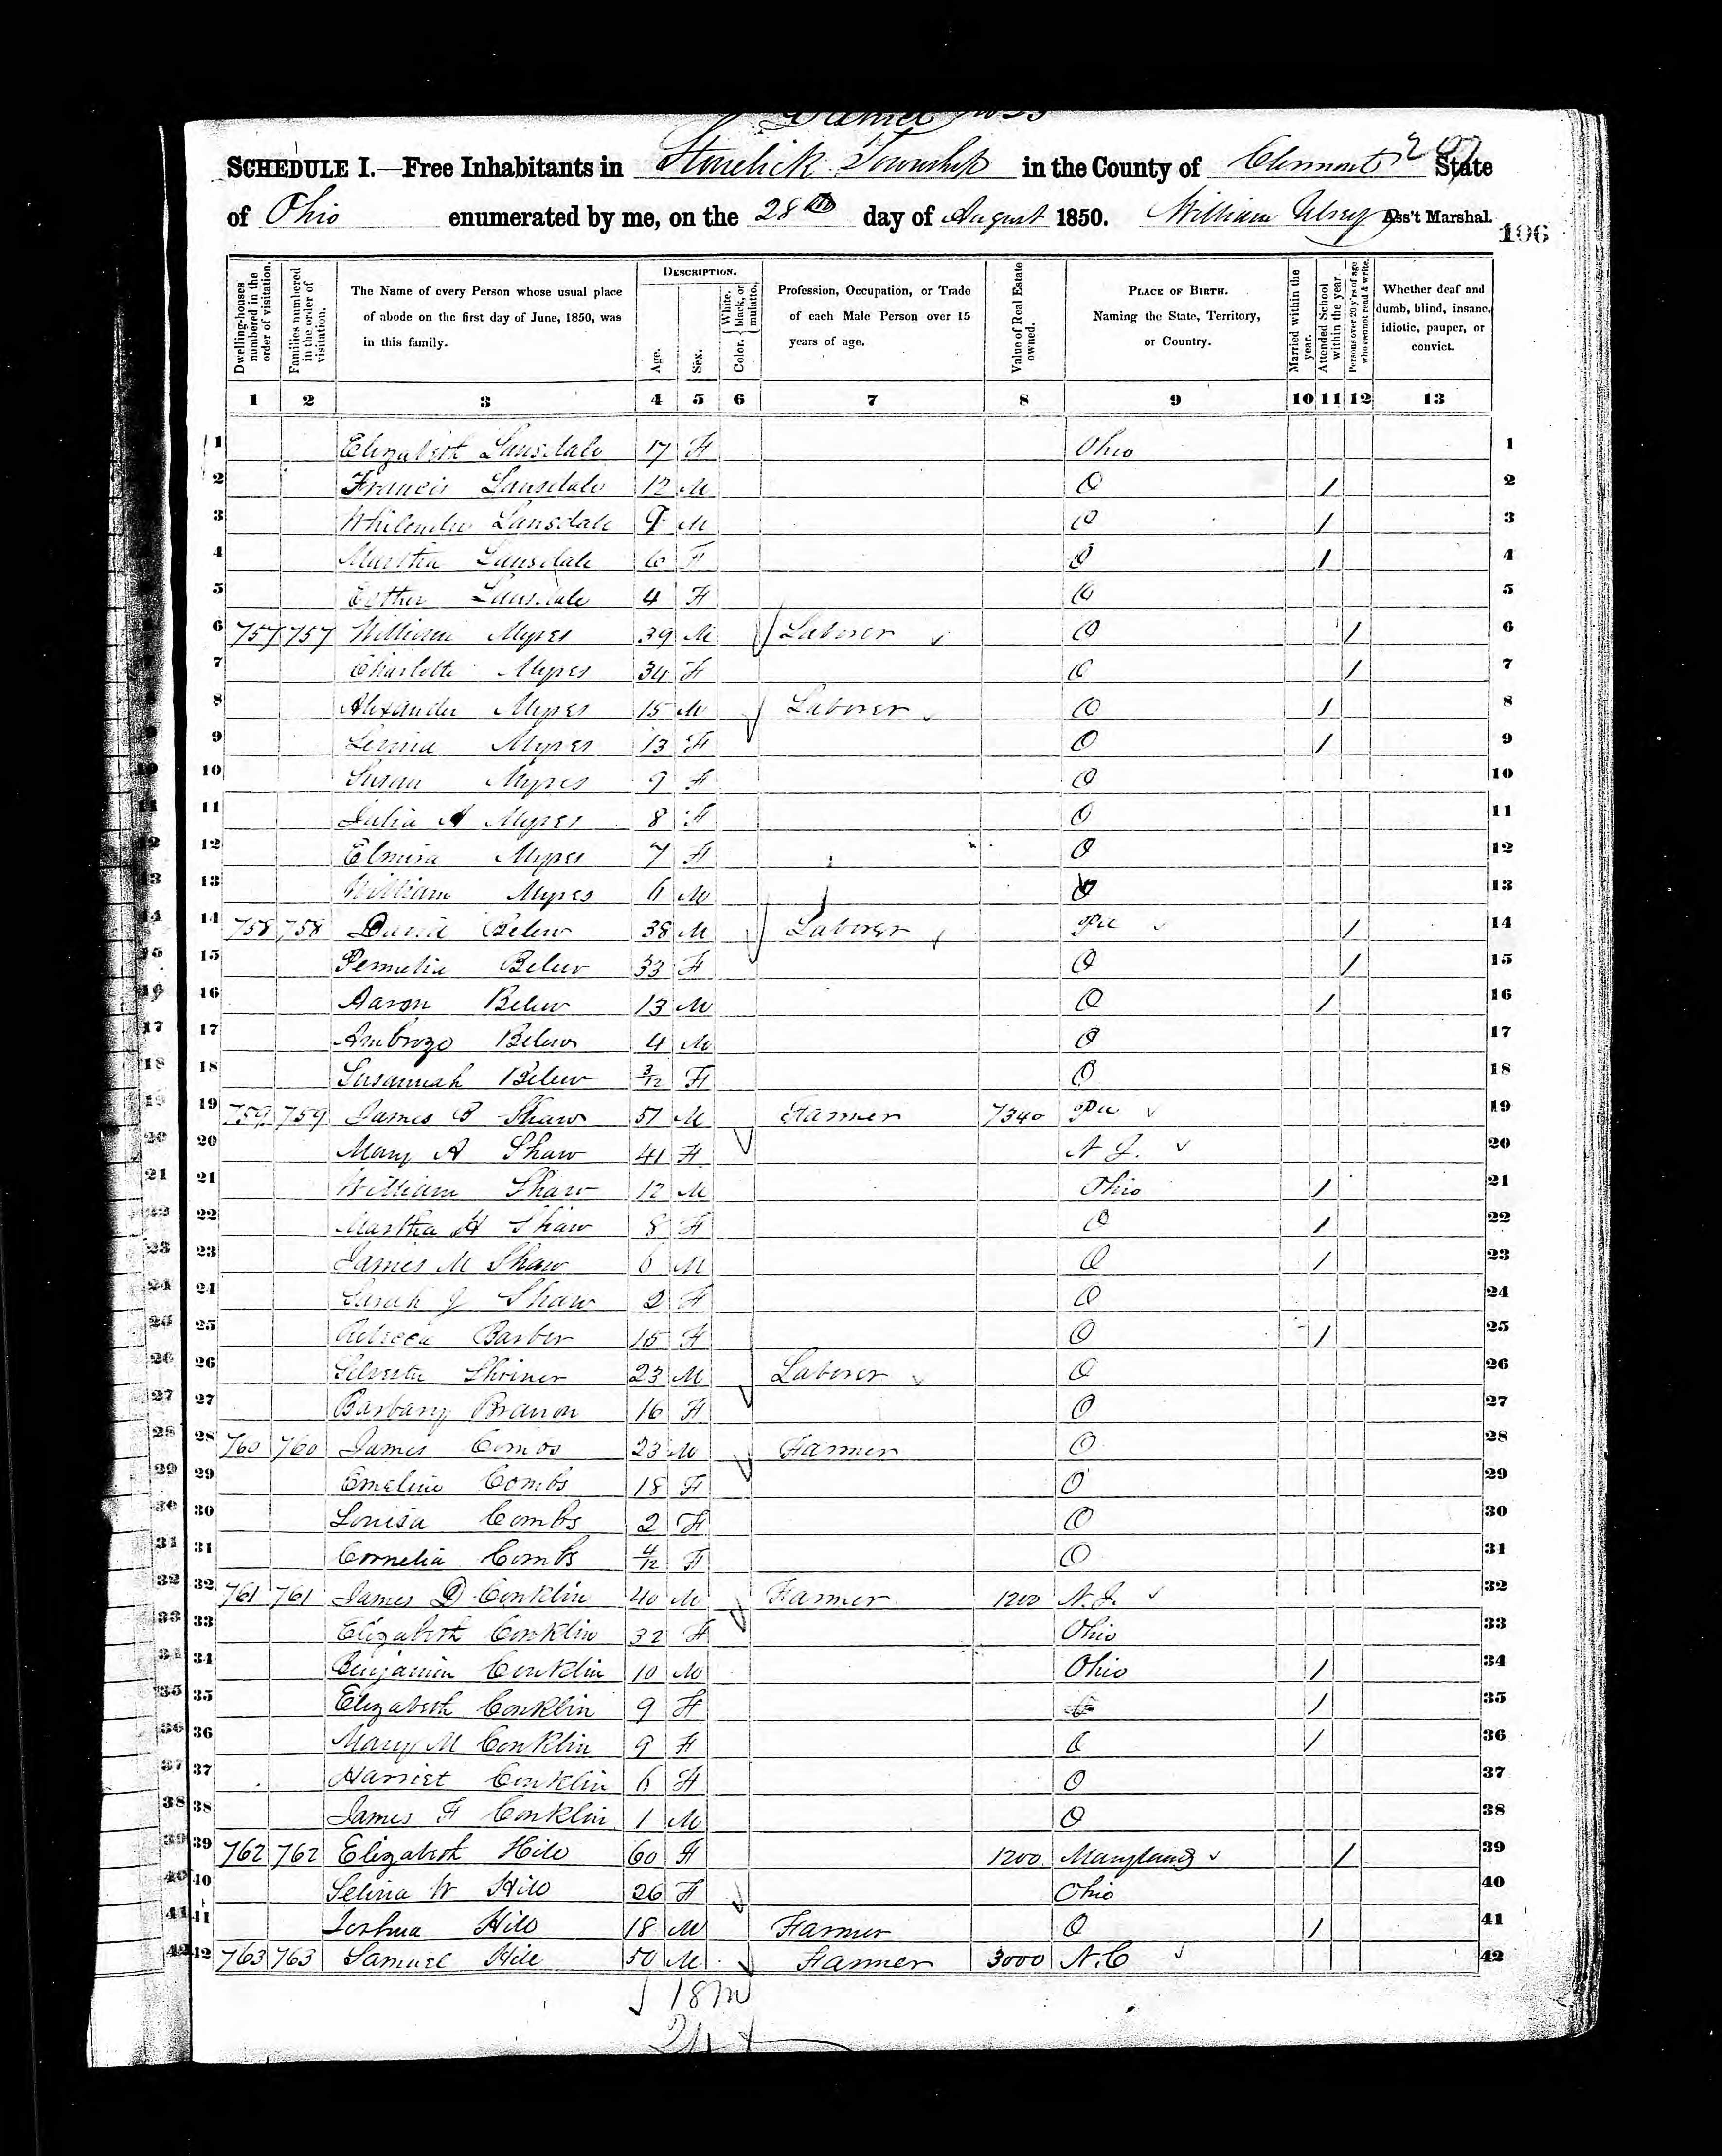 Daniel
SCHEDULE I.—Free Inhabitants in Stonelick Township in the County of Clermont State
of Ohio enumerated by me, on the 28th day of August 1850. William Ass't Marshal.
106
Dwelling-houses numbered in the order of visitation.
Families numbered in the order of visitation.
The Name of every Person whose usual place of abode on the first day of June, 1850, was in this family.
DESCRIPTION.
Age.
Sex.
Color. { White, black, or mulatto.
Profession, Occupation, or Trade of each Male Person over 15 years of age.
Value of Real Estate owned.
PLACE OF BIRTH. Naming the State, Territory, or Country.
Married within the year.
Attended School within the year.
Persons over 20 y'rs of age who cannot read & write.
Whether deaf and dumb, blind, insane, idiotic, pauper, or convict.
1 2 3 4 5 6 7 8 9 10 11 12 13
1 Elizabeth Lansdale 17 F Ohio 1
2 Francis Lansdale 12 M O / 2
3 Lansdale 9 M O / 3
4 Martha Lansdale 6 F O / 4
5 Esther Lansdale 4 F O 5
6 757 757 William Myres 39 M Laborer O / 6
7 Charlotte Myres 34 F O / 7
8 Alexander Myres 15 M Laborer O / 8
9 Myres 13 F O / 9
10 Susan Myres 9 F O 10
11 Julia A Myres 8 F O 11
12 Elmira Myres 7 F O 12
13 William Myres 6 M O 13
14 758 758 David Belew 38 M Laborer Pa / 14
15 Permelia Belew 33 F O / 15
16 Aaron Belew 13 M O / 16
17 Ambrozo Belew 4 M O 17
18 Susannah Belew 3/12 F O 18
19 759 759 James B Shaw 51 M Farmer 7340 Pa 19
20 Mary A Shaw 41 F N J. 20
21 William Shaw 12 M Ohio / 21
22 Martha H Shaw 8 F O / 22
23 James M Shaw 6 M O / 23
24 Sarah J Shaw 2 F O 24
25 Rebecca Barber 15 F O / 25
26 Shriner 23 M Laborer O 26
27 Barbary Branon 16 F O 27
28 760 760 James Combs 23 M Farmer O 28
29 Emeline Combs 18 F O 29
30 Louisa Combs 2 F O 30
31 Cornelia Combs 4/12 F O 31
32 761 761 James D Conklin 40 M Farmer 1200 N.J. 32
33 Elizabeth Conklin 32 F Ohio 33
34 Benjamin Conklin 10 M Ohio / 34
35 Elizabeth Conklin 9 F / 35
36 Mary M Conklin 9 F O / 36
37 Harriet Conklin 6 F O 37
38 James F Conklin 1 M O 38
39 762 762 Elizabeth Hill 60 F 1200 Maryland / 39
40 Selina W Hill 26 F Ohio 40
41 Joshua Hill 18 M Farmer O / 41
42 763 763 Samuel Hill 50 M Farmer 3000 N.C 42
18 m
24 f